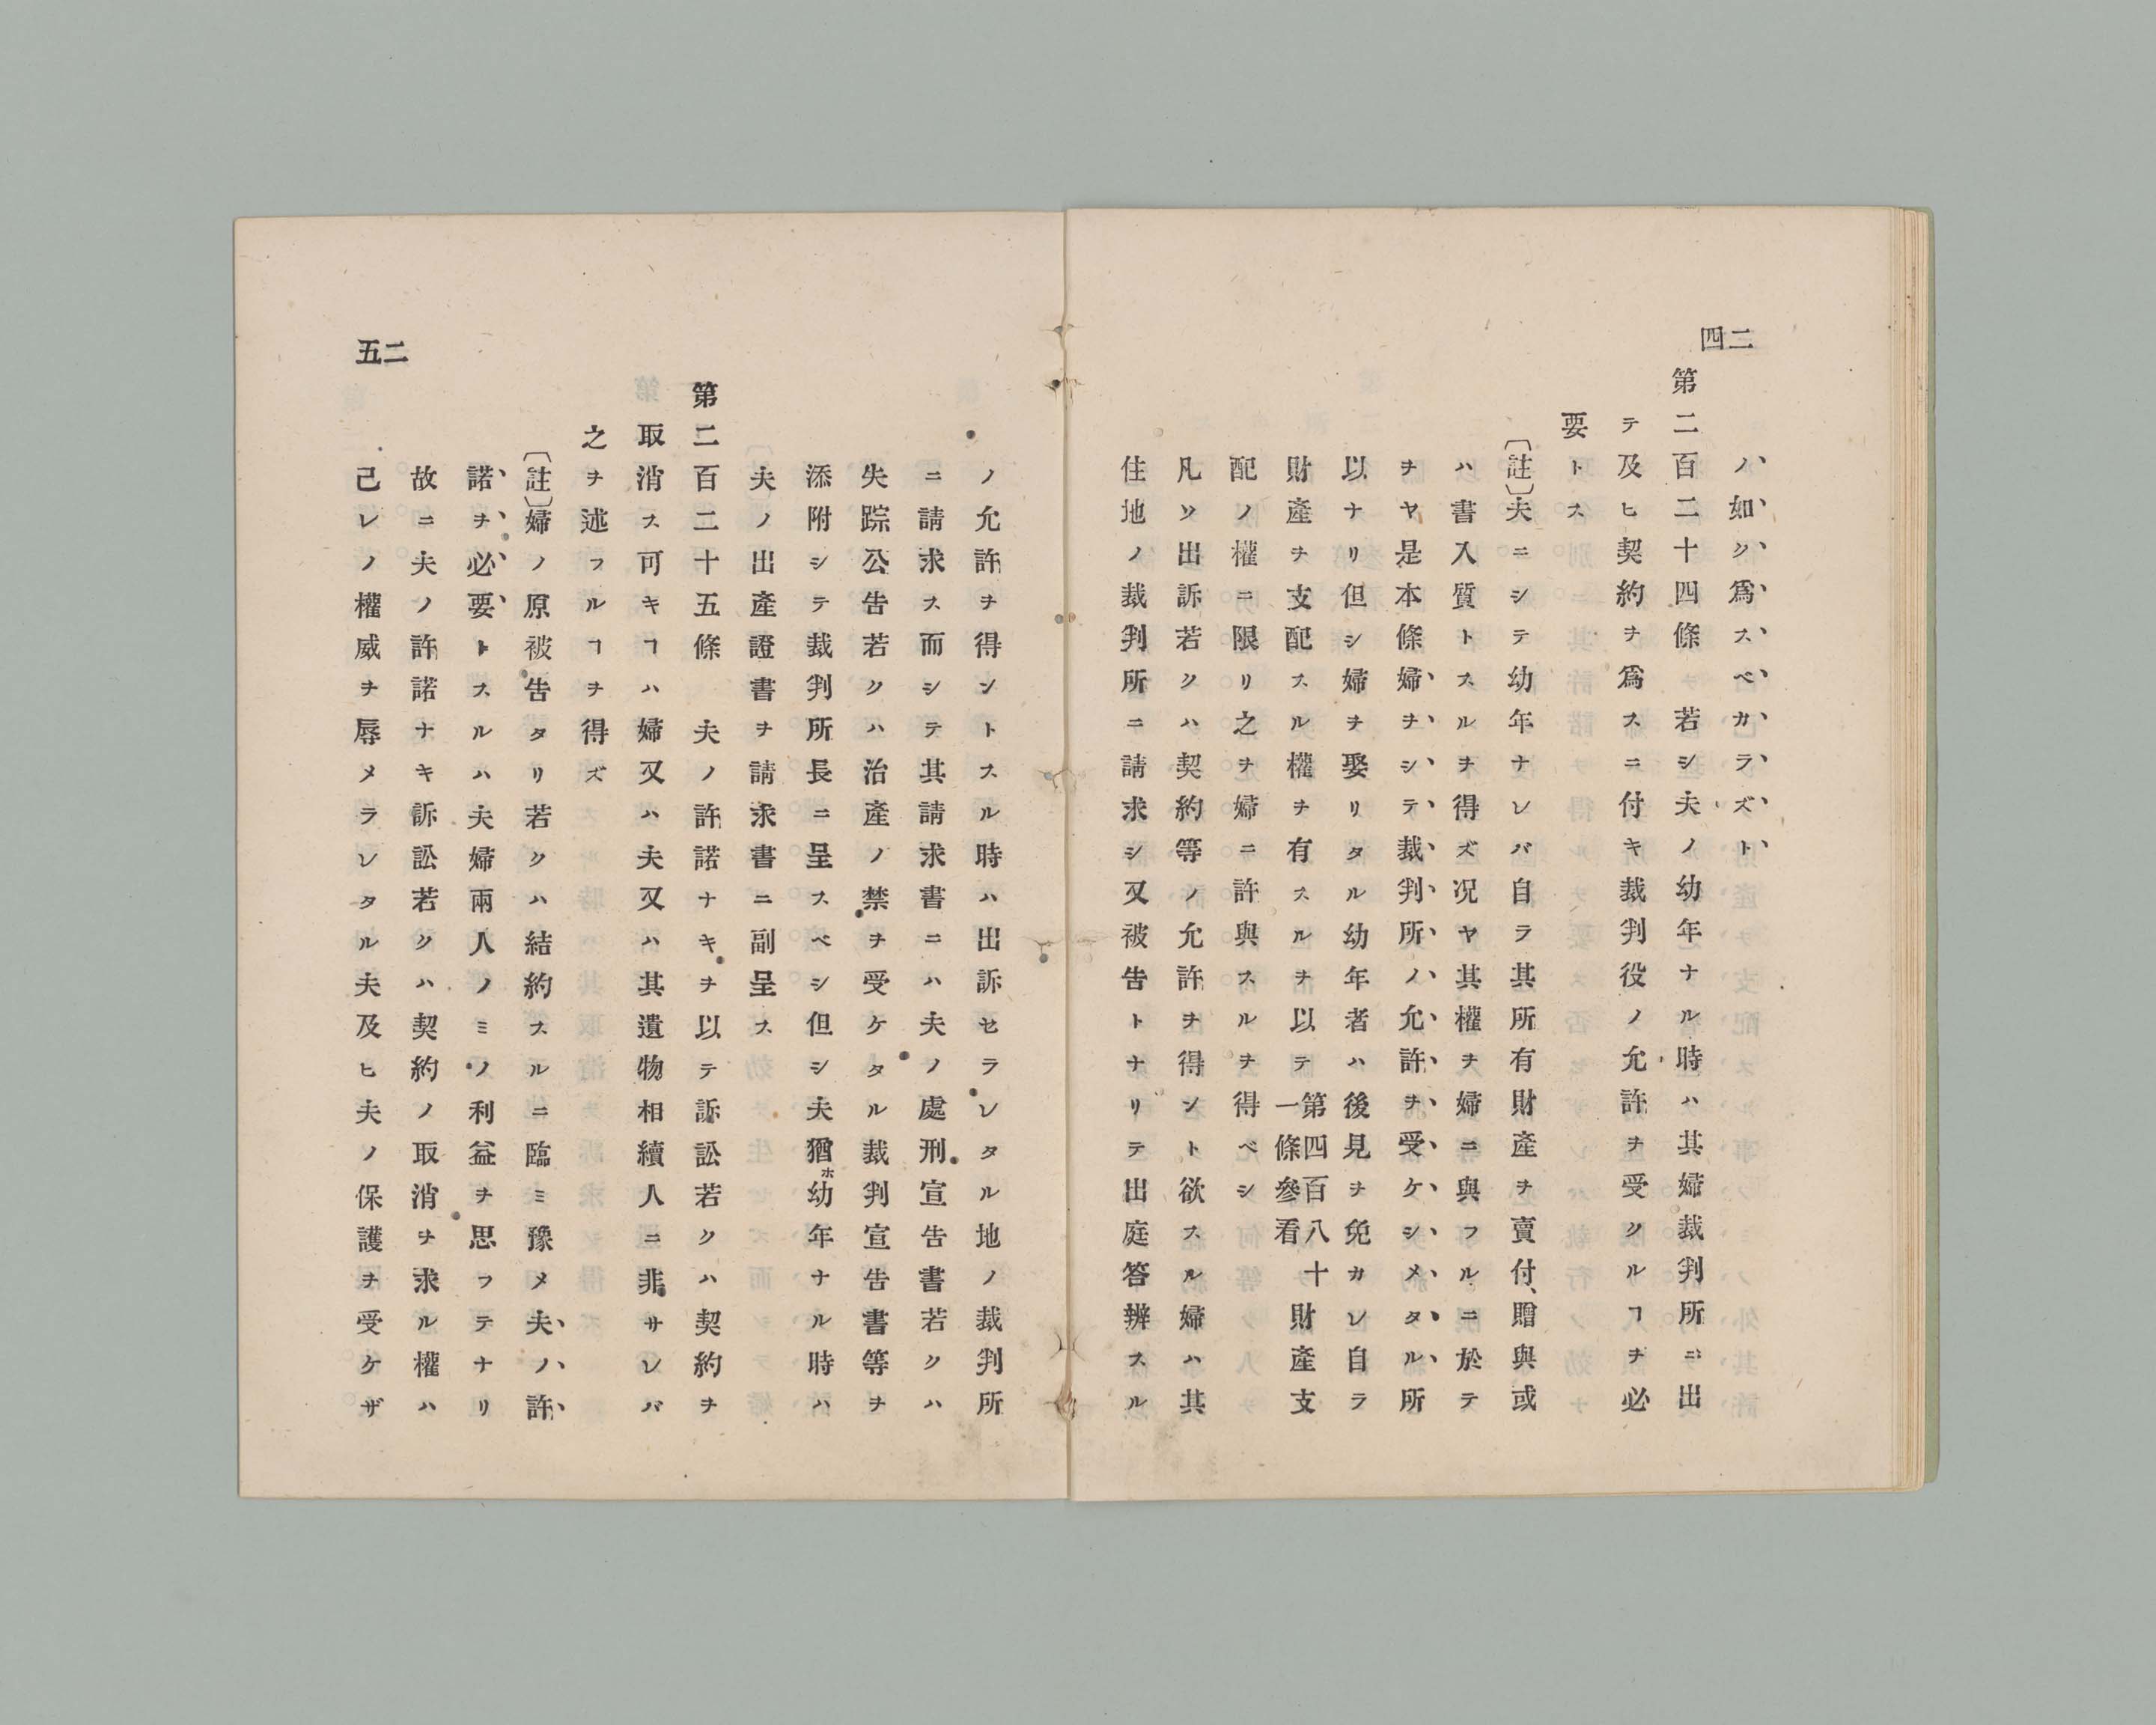 四二
ノ如ク爲スベカラズト
第二百二十四條 若シ夫ノ幼年ナル時ハ其婦裁判所ニ出
テ及ヒ契約ヲ爲スニ付キ裁判役ノ允許ヲ受クルヿヲ必
要トス
〔註〕夫ニシテ幼年ナレバ自ラ其所有財產ヲ賣付、贈與或
ハ書入質トスルヲ得ズ況ヤ其權ヲ婦ニ與フルニ於テ
ヲヤ是本條婦ヲシテ裁判所ノ允許ヲ受ケシメタル所
以ナリ但シ婦ヲ娶リタル幼年者ハ後見ヲ免カレ自ラ
財產ヲ支配スル權ヲ有スルヲ以テ第四百八十一條參看財產支
配ノ權ニ限リ之ヲ婦ニ許與スルヲ得ベシ
凡ソ出訴若クハ契約等ノ允許ヲ得ント欲スル婦ハ其
住地ノ裁判所ニ請求シ又被告トナリテ出庭答辨スル
五二
ノ允許ヲ得ントスル時ハ出訴セラレタル地ノ裁判所
ニ請求ス而シテ其請求書ニハ夫ノ處刑宣告書若クハ
失踪公告若クハ治產ノ禁ヲ受ケタル裁判宣告書等ヲ
添附シテ裁判所長ニ呈スベシ但シ夫猶ホ幼年ナル時ハ
夫ノ出產證書ヲ請求書ニ副呈ス
第二百二十五條 夫ノ許諾ナキヲ以テ訴訟若クハ契約ヲ
取消ス可キヿハ婦又ハ夫又ハ其遺物相續人ニ非サレバ
之ヲ述フルヿヲ得ズ
〔註〕婦ノ原被告タリ若クハ結約スルニ臨ミ豫メ夫ノ許
諾ヲ必要トスルハ夫婦兩人ノミノ利益ヲ思フテナリ
故ニ夫ノ許諾ナキ訴訟若クハ契約ノ取消ヲ求ル權ハ
己レノ權威ヲ辱メラレタル夫及ヒ夫ノ保護ヲ受ケザ